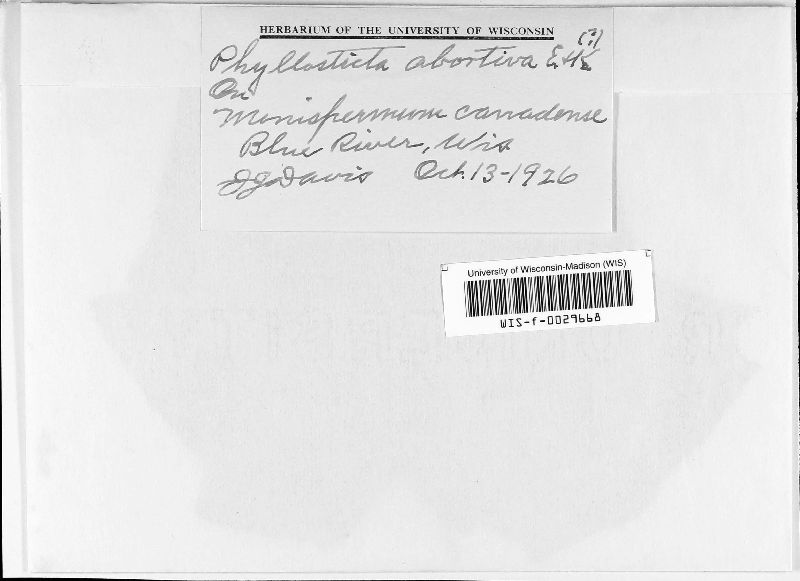 HERBARIUM OF THE UNIVERSITY OF WISCONSIN
(?)
Phyllosticta abortiva E.+K
On
Menispermum canadense
Blue River, Wis
JJ Davis Oct. 13-1926
University of Wisconsin-Madison (WIS)
WIS-f-0029668